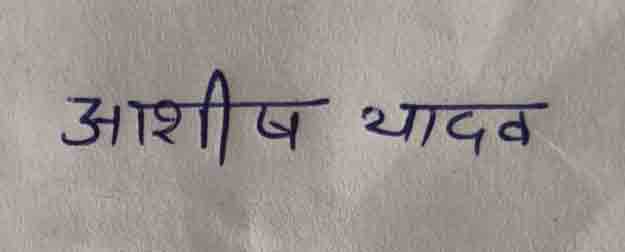 आशीष यादव